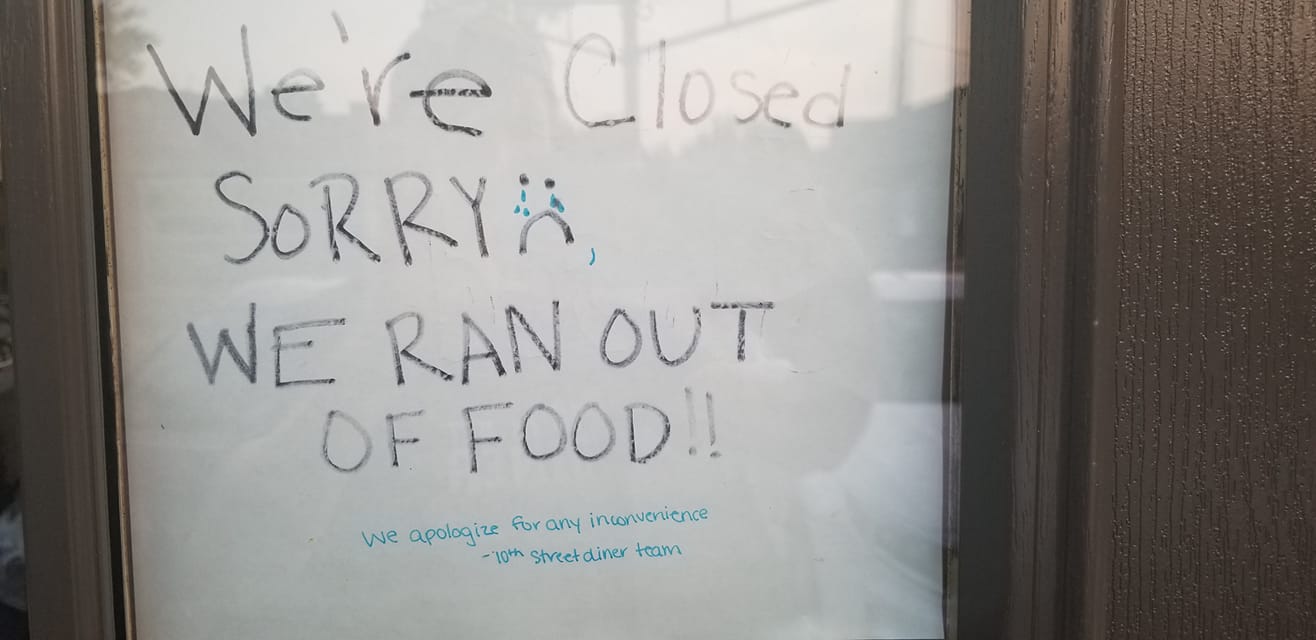 We're Closed
SORRY ,
WE RAN OUT
OF FOOD!!
We apologize for any inconvenience
-10th street diner team